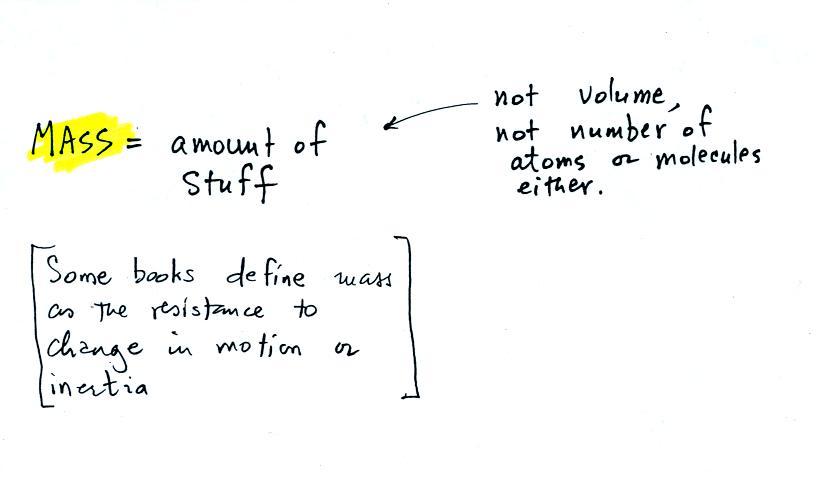 MASS = amount of
stuff
not volume,
not number of
atoms or molecules
either.
[Some books define mass
as the resistance to
change in motion or
inertia]